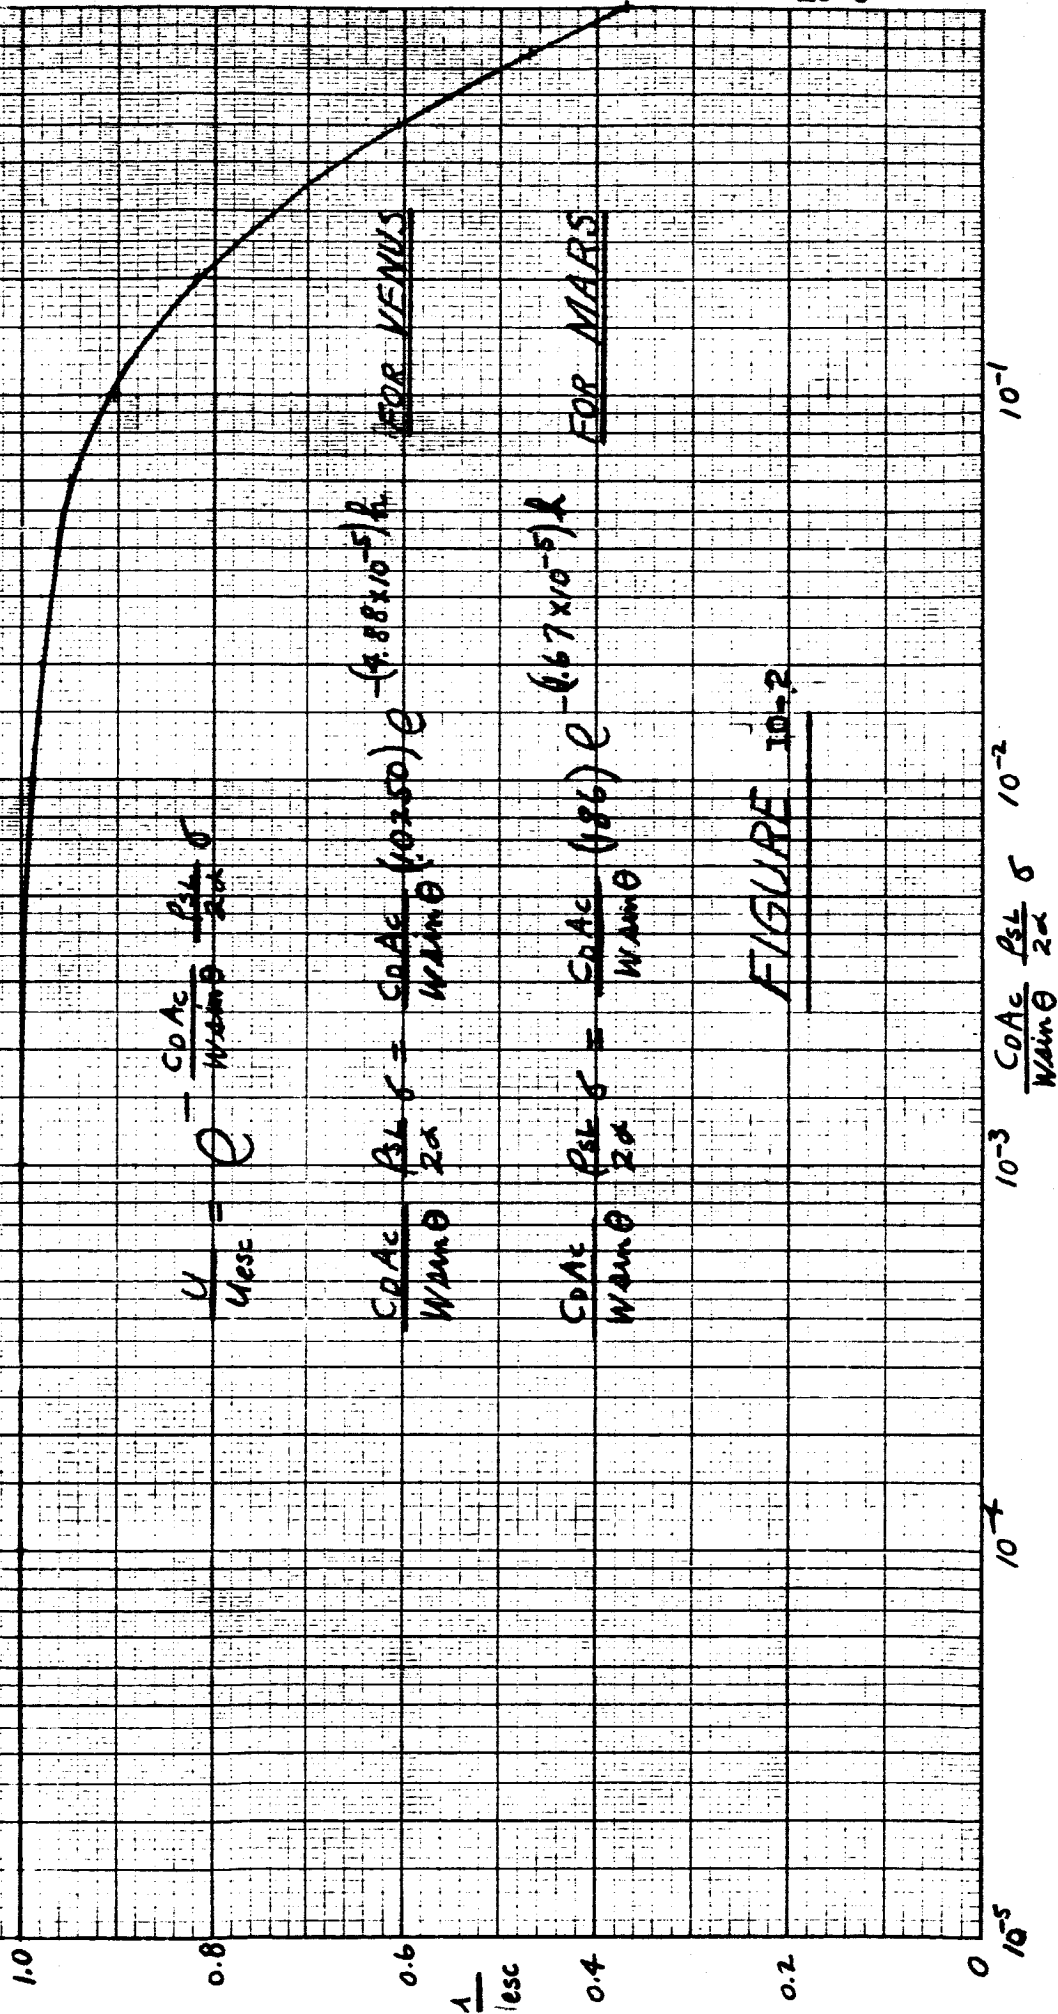 1.0
0.8
0.6
0.4
0.2
0
esc
u/u_esc = e^(- (C_D A_c / W sin θ) (ρ_SL / 2α) σ)
C_D A_c / W sin θ ρ_SL / 2α σ = C_D A_c / W sin θ (10250) e^-(4.88x10^-5)h FOR VENUS
C_D A_c / W sin θ ρ_SL / 2α σ = C_D A_c / W sin θ (186) e^-(1.67x10^-5)h FOR MARS
FIGURE 10-2
10^-5 10^-4 10^-3 10^-2 10^-1
C_D A_c / W sin θ ρ_SL / 2α σ